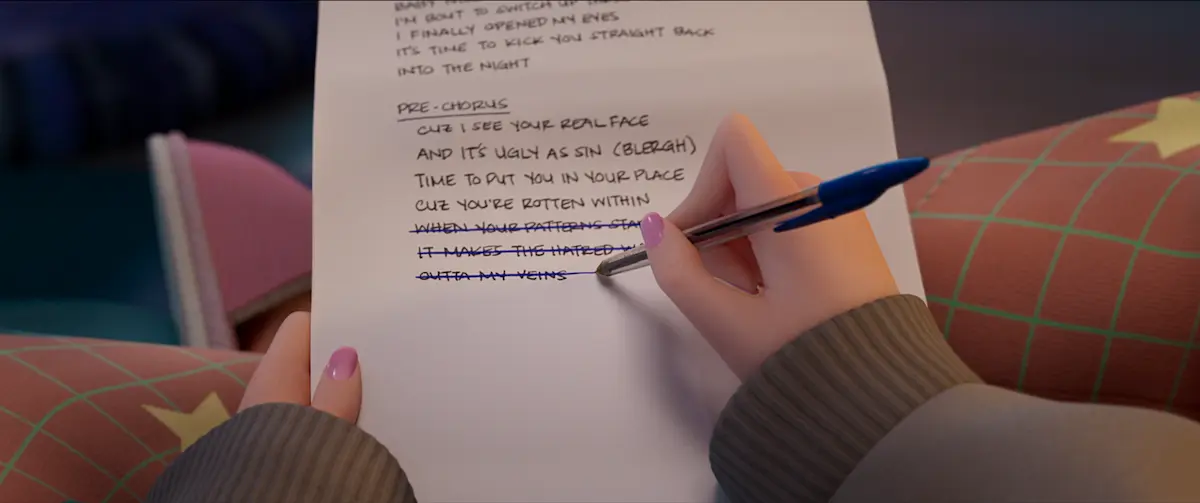 BABY
I'M BOUT TO SWITCH UP
I FINALLY OPENED MY EYES
IT'S TIME TO KICK YOU STRAIGHT BACK
INTO THE NIGHT
PRE-CHORUS
CUZ I SEE YOUR REAL FACE
AND IT'S UGLY AS SIN (BLERGH)
TIME TO PUT YOU IN YOUR PLACE
CUZ YOU'RE ROTTEN WITHIN
WHEN YOUR PATTERNS
IT MAKES THE HATRED
OUTTA MY VEINS